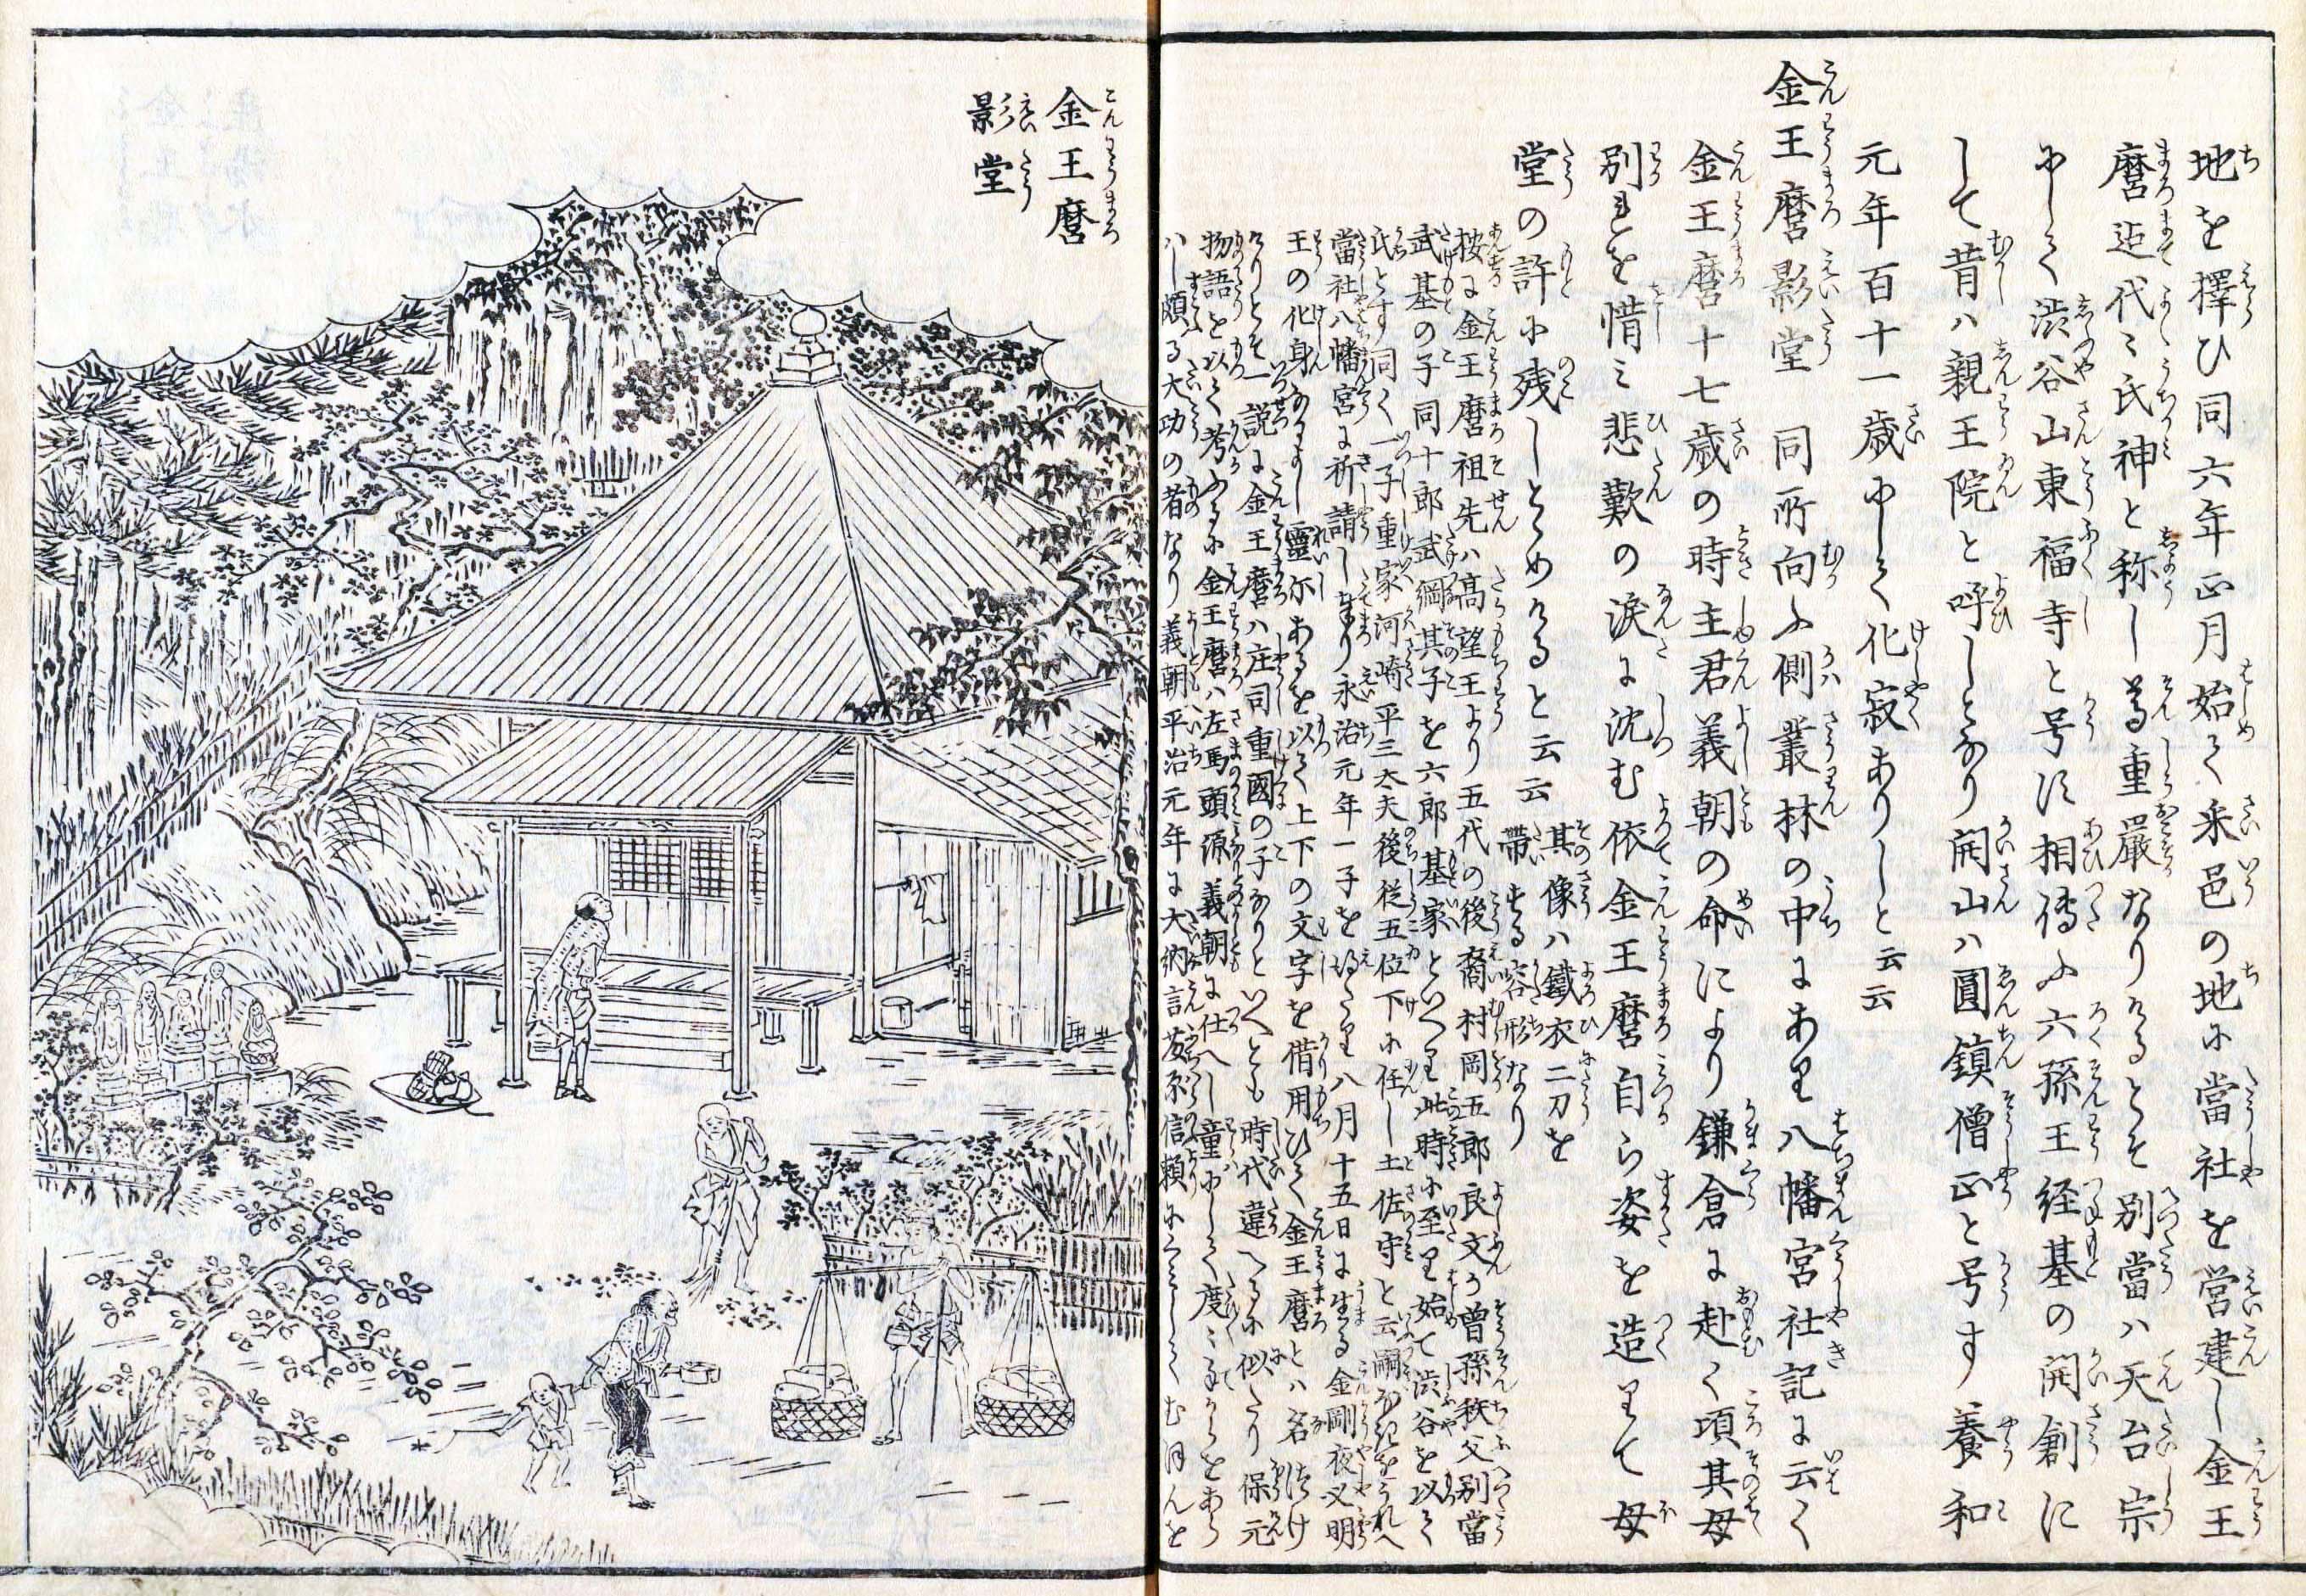 地を擇ひ同六年正月始て采邑の地に當社を営建し金王
麿迄代々氏神と称し尊重嚴なりけるとそ別當ハ天台宗
にして渋谷山東福寺と号す相傳ふ六孫王経基の開創に
して昔ハ親王院と呼しとなり開山ハ圓鎮僧正と号す養和
元年百十一歳にして化寂ありしと云云
金王麿影堂 同所向ふ側叢林の中にあり八幡宮社記に云く
金王麿十七歳の時主君義朝の命により鎌倉に赴く頃其母
別れを惜み悲歎の涙に沈む依金王麿自ら姿を造りて母
堂の許に残しとゝめけると云云 其像ハ鐵衣二刀を
帶せる容形なり
按に金王麿祖先ハ高望王より五代の後裔村岡五郎良文の曽孫秩父別當
武基の子同十郎武綱其子を六郎基家といへり此時に至り始て渋谷を以て
氏とす同く一子重家河崎平三大夫後従五位下に任し土佐守と云嗣なきをうれへ
當社八幡宮に祈請し奉り永治元年一子を得たり八月十五日に生る金剛夜叉明
王の化身なりまし靈示あるを以て上下の文字を借用ひて金王麿とハ名つけ
けりとそ一説に金王麿ハ庄司重國の子なりといへとも時代違へるに似たり保元
物語を以て考ふるに金王麿ハ左馬頭源義朝に仕へし童にして度々手からをあら
ハし頗る大功の者なり義朝平治元年に大納言藤原信頼にくみしてむほんを
金王麿
影堂